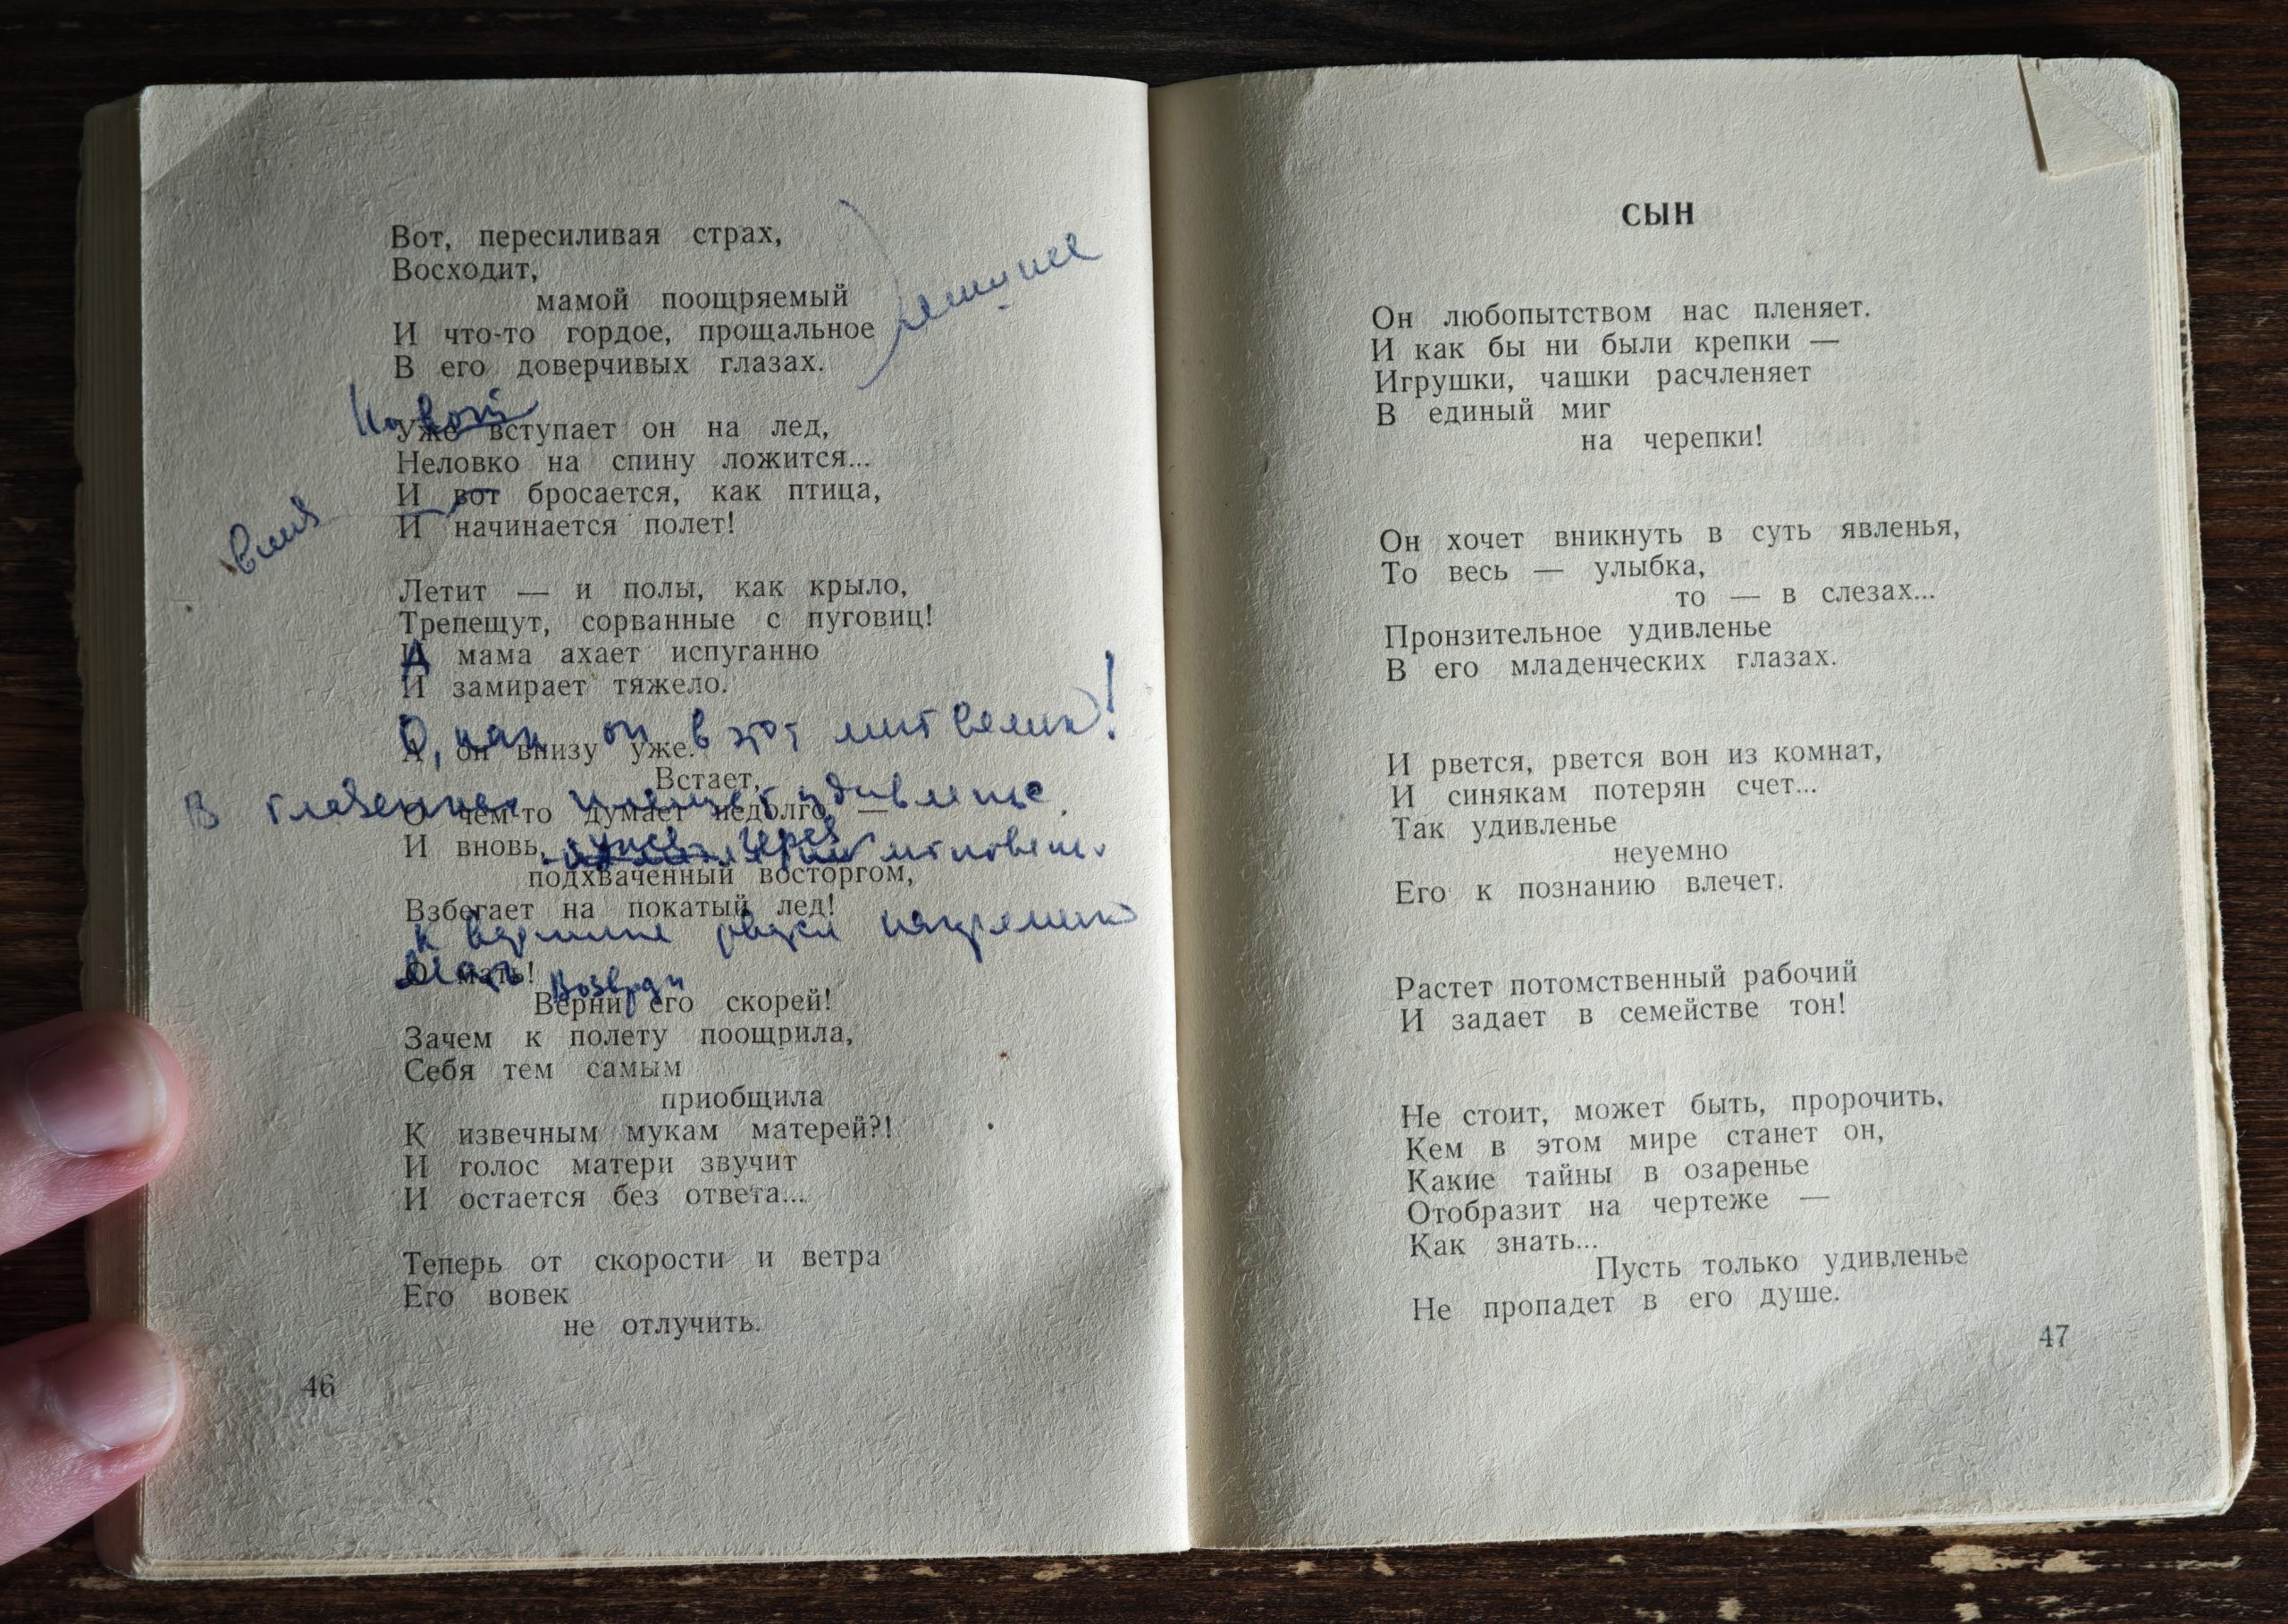 Вот, пересиливая страх,
Восходит,
мамой поощряемый
И что-то гордое, прощальное
В его доверчивых глазах.
Уже вступает он на лед,
Неловко на спину ложится...
И вот бросается, как птица,
И начинается полет!
Летит — и полы, как крыло,
Трепещут, сорванные с пуговиц!
А мама ахает испуганно
И замирает тяжело.
О, как он в этот миг велик!
А он внизу уже.
Встает,
В глазенках удивленье
О чем-то думает недолго —
И вновь,
через мгновенье
подхваченный восторгом,
Взбегает на покатый лед!
К вершине рвется напрямик
О мать!
Возврати
Верни его скорей!
Зачем к полету поощрила,
Себя тем самым
приобщила
К извечным мукам матерей?!
И голос матери звучит
И остается без ответа...
Теперь от скорости и ветра
Его вовек
не отлучить.
46
СЫН
Он любопытством нас пленяет.
И как бы ни были крепки —
Игрушки, чашки расчленяет
В единый миг
на черепки!
Он хочет вникнуть в суть явленья,
То весь — улыбка,
то — в слезах...
Пронзительное удивленье
В его младенческих глазах.
И рвется, рвется вон из комнат,
И синякам потерян счет...
Так удивленье
неуемно
Его к познанию влечет.
Растет потомственный рабочий
И задает в семействе тон!
Не стоит, может быть, пророчить,
Кем в этом мире станет он,
Какие тайны в озаренье
Отобразит на чертеже —
Как знать...
Пусть только удивленье
Не пропадет в его душе.
47